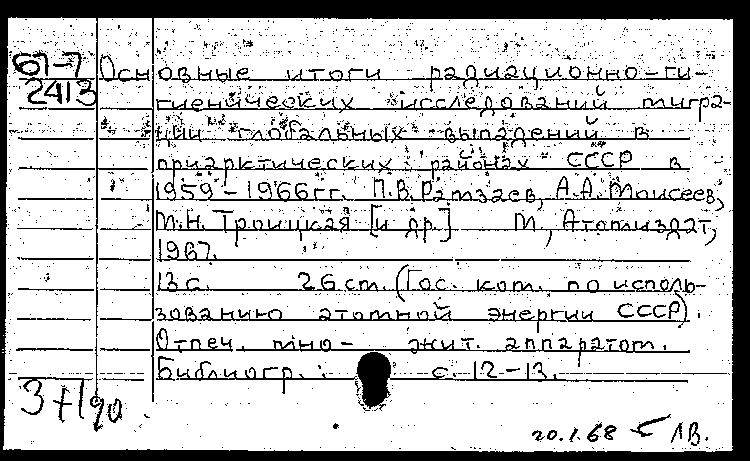 67-7
2413
Основные итоги радиационно-ги-
гиенических исследований мигра-
ции глобальных выпадений в
приарктических районах СССР в
1959-1966гг. П.В.Рамзаев, А.А.Моисеев,
М.Н.Троицкая [и др.] М, Атомиздат,
1967.
13 с. 26 см. (Гос. ком. по исполь-
зованию атомной энергии СССР).
Отпеч. мно- жит. аппаратом.
Библиогр.: с. 12-13.
20.1.68 ЛВ.